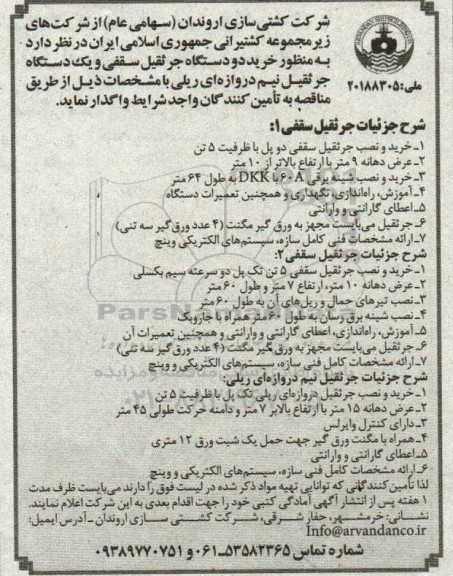 شرکت کشتی‌سازی اروندان (سهامی عام) از شرکت‌های
زیرمجموعه کشتیرانی جمهوری اسلامی ایران در نظر دارد
به منظور خرید دو دستگاه جرثقیل سقفی و یک دستگاه
جرثقیل نیم دروازه‌ای ریلی با مشخصات ذیل از طریق
ملی: ۲۰۱۸۸۳۰۵
مناقصه به تأمین کنندگان واجد شرایط واگذار نماید.
شرح جزئیات جرثقیل سقفی ۱:
۱ـ خرید و نصب جرثقیل سقفی دو پل با ظرفیت ۵ تن
۲ـ عرض دهانه ۹ متر با ارتفاع بالاتر از ۱۰ متر
۳ـ خرید و نصب شینه برقی ۶۰A با DKK به طول ۶۴ متر
۴ـ آموزش، راه‌اندازی، نگهداری و همچنین تعمیرات دستگاه
۵ـ اعطای گارانتی و وارانتی
۶ـ جرثقیل می‌بایست مجهز به ورق گیر مگنت (۴ عدد ورق‌گیر سه تنی)
۷ـ ارائه مشخصات فنی کامل سازه، سیستم‌های الکتریکی وینچ
شرح جزئیات جرثقیل سقفی ۲:
۱ـ خرید و نصب جرثقیل سقفی ۵ تن تک پل دو سرعته سیم بکسلی
۲ـ عرض دهانه ۱۰ متر، ارتفاع ۷ متر و طول ۶۰ متر
۳ـ نصب تیرهای حمال و ریل‌های آن به طول ۶۰ متر
۴ـ نصب شینه برق رسان به طول ۶۰ متر همراه با جاروبک
۵ـ آموزش، راه‌اندازی، اعطای گارانتی و وارانتی و همچنین تعمیرات آن
۶ـ جرثقیل می‌بایست مجهز به ورق گیر مگنت (۴ عدد ورق‌گیر سه تنی)
۷ـ ارائه مشخصات کامل فنی سازه، سیستم‌های الکتریکی و وینچ
شرح جزئیات جرثقیل نیم دروازه‌ای ریلی:
۱ـ خرید و نصب جرثقیل دروازه‌ای ریلی تک پل با ظرفیت ۵ تن
۲ـ عرض دهانه ۱۵ متر با ارتفاع بالابر ۷ متر و دامنه حرکت طولی ۴۵ متر
۳ـ دارای کنترل وایرلس
۴ـ همراه با مگنت ورق گیر جهت حمل یک شیت ورق ۱۲ متری
۵ـ اعطای گارانتی و وارانتی
۶ـ ارائه مشخصات کامل فنی سازه، سیستم‌های الکتریکی و وینچ
لذا تأمین کنندگانی که توانایی تهیه مواد ذکر شده در لیست فوق را دارند می‌بایست ظرف مدت
۱ هفته پس از انتشار آگهی آمادگی کتبی خود را جهت اقدام بعدی به این شرکت اعلام نمایند.
نشانی: خرمشهر، حفار شرقی، شرکت کشتی سازی اروندان ـ آدرس ایمیل:
Info@arvandanco.ir
شماره تماس ۵۳۵۸۲۳۶۵ـ۰۶۱ و ۰۹۳۸۹۷۷۰۷۵۱